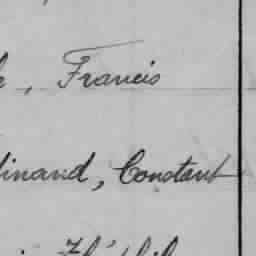 , Francis
dinand, Constant